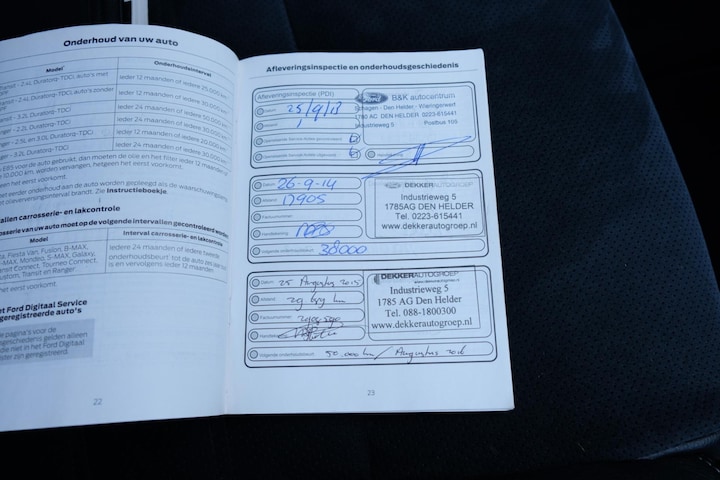 Onderhoud van uw auto
Model
Onderhoudsinterval
Transit - 2.4L Duratorq-TDCi, auto's met
Ieder 12 maanden of iedere 25.000 km
Transit - 2.4L Duratorq-TDCi, auto's zonder
Ieder 12 maanden of iedere 30.000 km
- 3.2L Duratorq-TDCi
Ieder 24 maanden of iedere 50.000 km
- 2.2L Duratorq-TDCi
Ieder 24 maanden of iedere 30.000 km
- 2.5L en 3.0L Duratorq-TDCi
Ieder 12 maanden of iedere 20.000 km
- 3.2L Duratorq-TDCi
Ieder 24 maanden of iedere 30.000 km
E85 voor de auto gebruikt, dan moeten de olie en het filter ieder 12 maanden of
10.000 km. worden vervangen, hetgeen het eerst voorkomt.
een het eerst voorkomt.
eerder onderhoud aan de auto worden gepleegd als de waarschuwing
olieverversingsinterval brandt. Zie Instructieboekje.
carrosserie- en lakcontrole
carrosserie van uw auto moet op de volgende intervallen gecontroleerd worden
Model
Interval carrosserie- en lakcontrole
Fiesta Van, Fusion, B-MAX,
C-MAX, Mondeo, S-MAX, Galaxy,
Transit Connect, Tourneo Connect,
Custom, Transit en Ranger
Iedere 24 maanden of iedere tweede
onderhoudsbeurt tot de auto zes jaar oud
is en vervolgens ieder 12 maanden
het eerst voorkomt.
het Ford Digitaal Service
geregistreerde auto's
pagina's voor de
geschiedenis gelden alleen
niet in het Ford Digitaal
zijn geregistreerd.
22
Afleveringsinspectie en onderhoudsgeschiedenis
Afleveringsinspectie (PDI)
Datum 25/9/13
Afstand 1
Ford B&K autocentrum
Schagen - Den Helder - Wieringerwerf
1785 AD DEN HELDER 0223-615441
Industrieweg 5 Postbus 105
Datum 26-9-14
Afstand 17905
Factuurnummer
Handtekening
Volgende onderhoudsbeurt 38000
DEKKERAUTOGROEP
Industrieweg 5
1785AG DEN HELDER
Tel. 0223-615441
www.dekkerautogroep.nl
Datum 25 Augustus 2015
Afstand
Factuurnummer
Volgende onderhoudsbeurt 50.000 km / Augustus 2016
DEKKERAUTOGROEP
www.dekkerautogroep.nl
Industrieweg 5
1785 AG Den Helder
Tel. 088-1800300
www.dekkerautogroep.nl
23